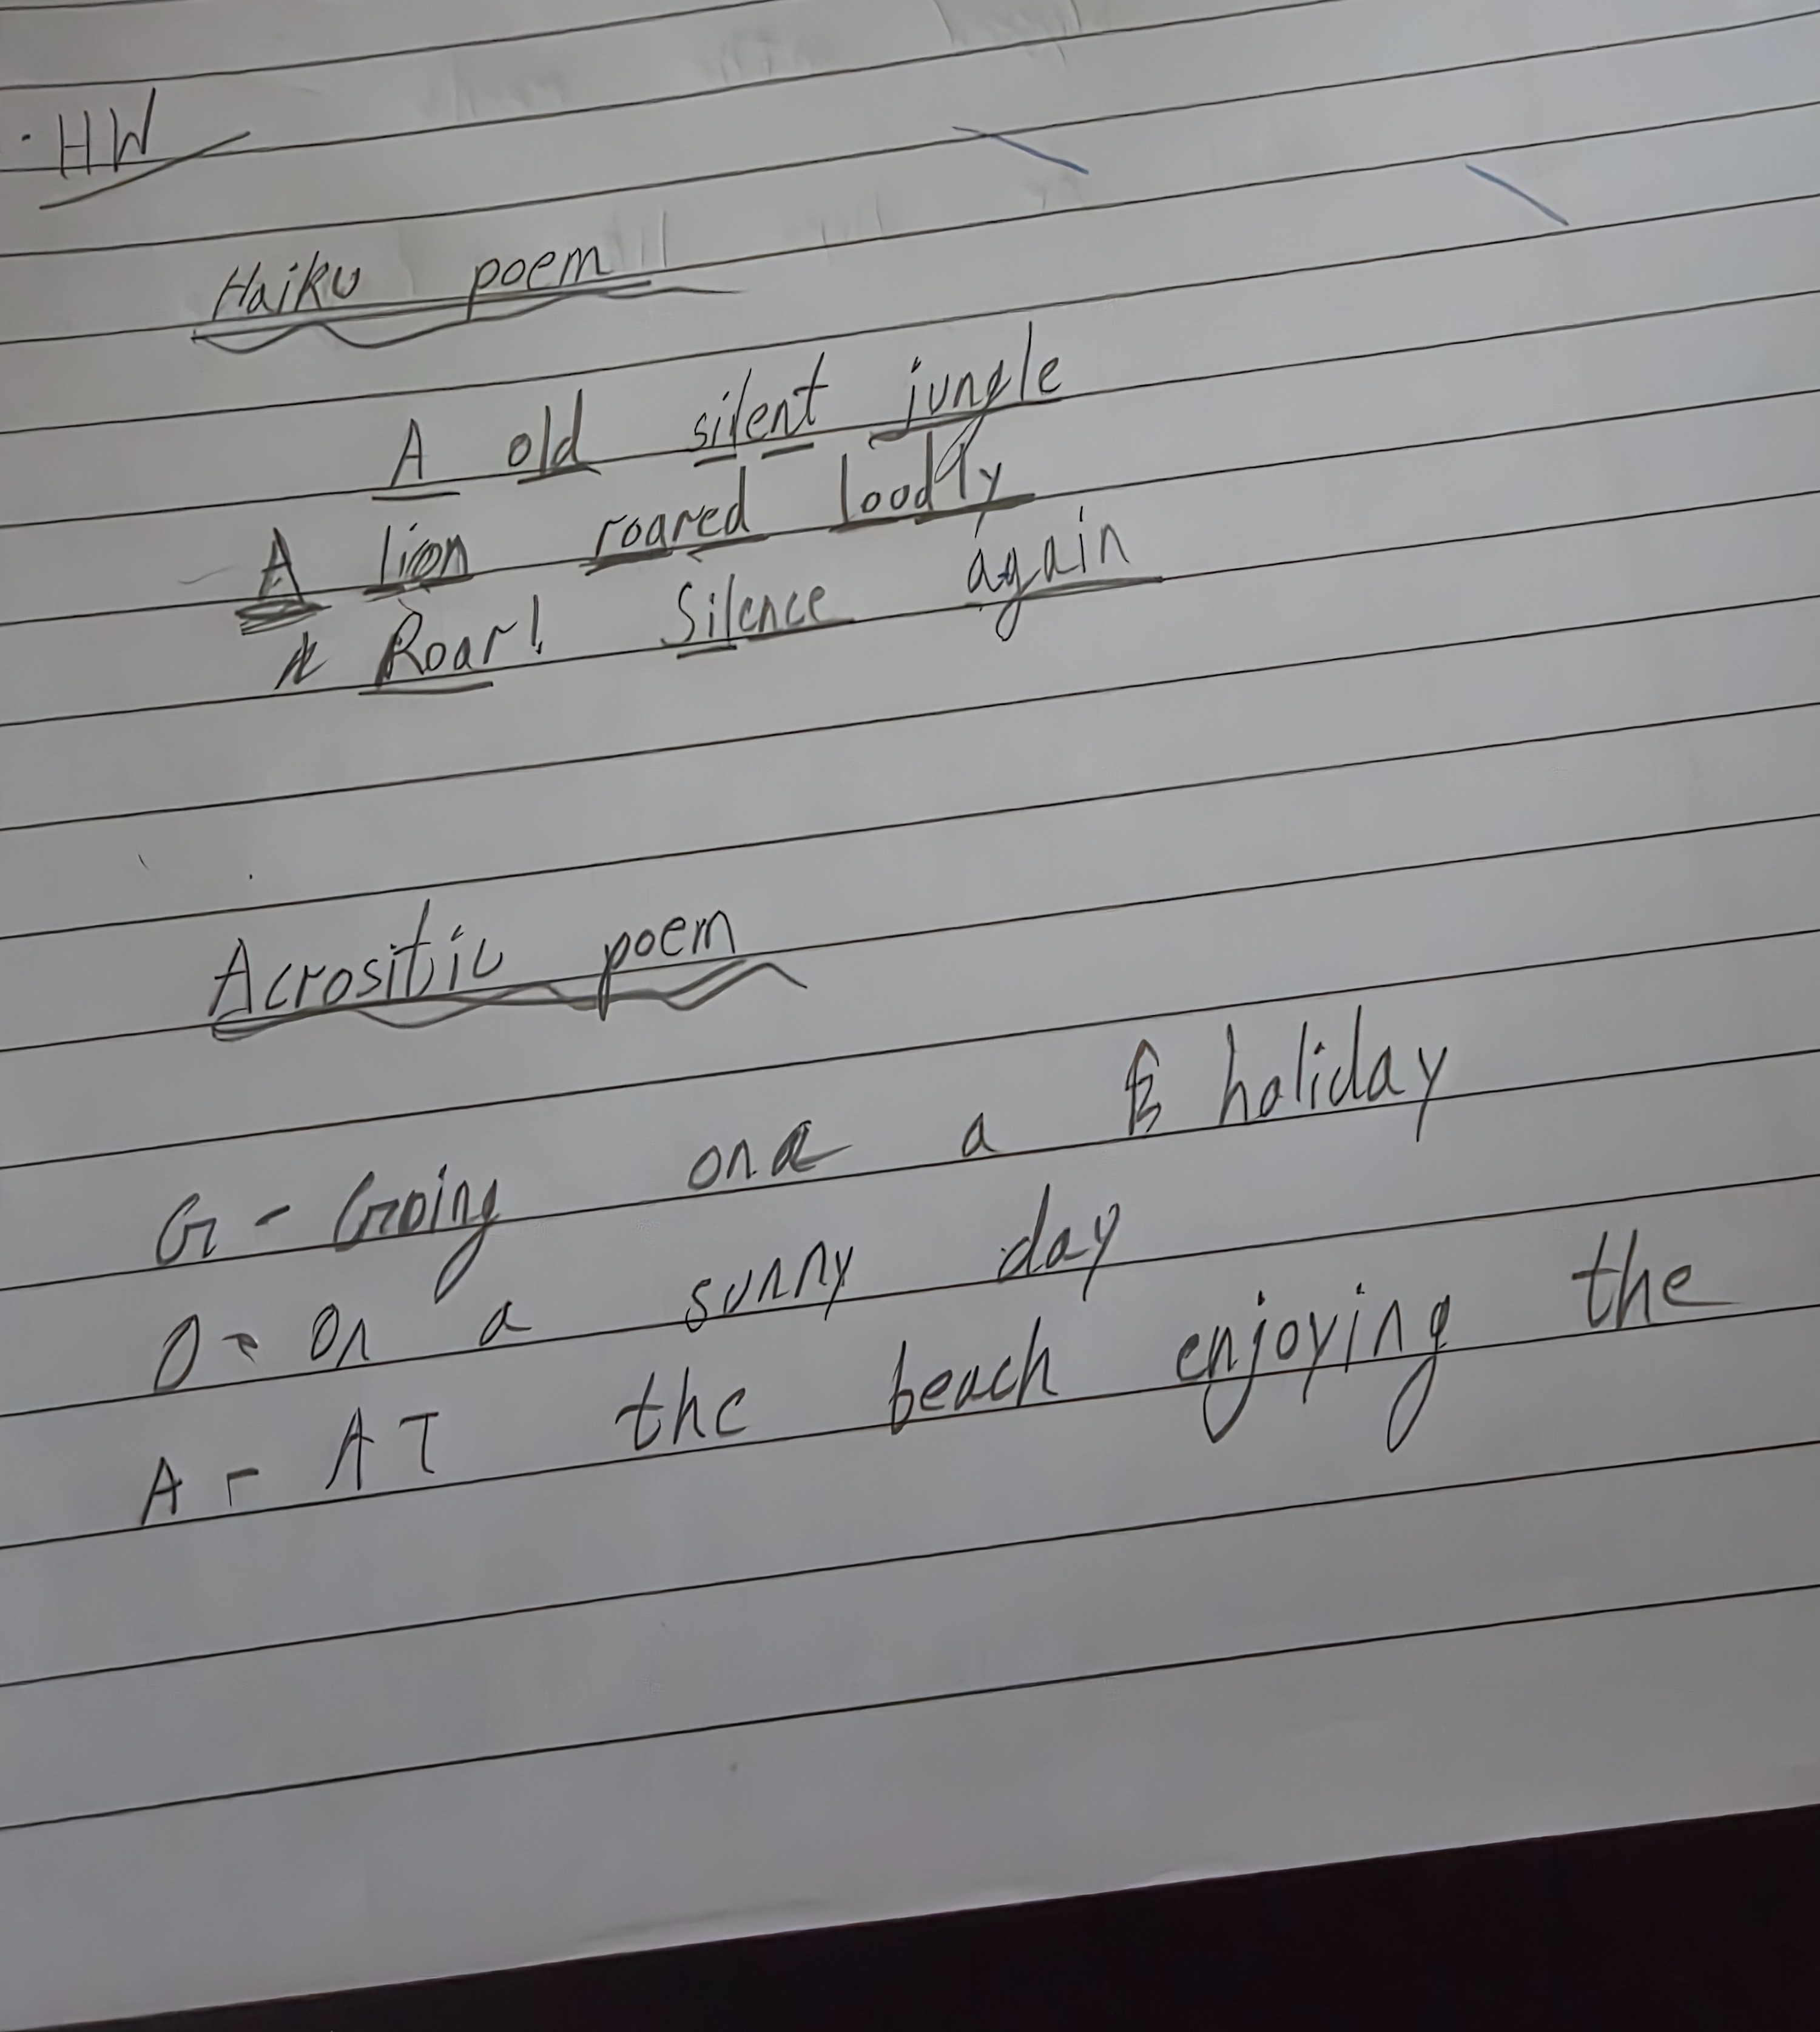 HW
Haiku poem
A old silent jungle
A lion roared loodly
Roar! Silence again
Acrositic poem
G - Going on a holiday
O - On a sunny day
A - AT the beach enjoying the